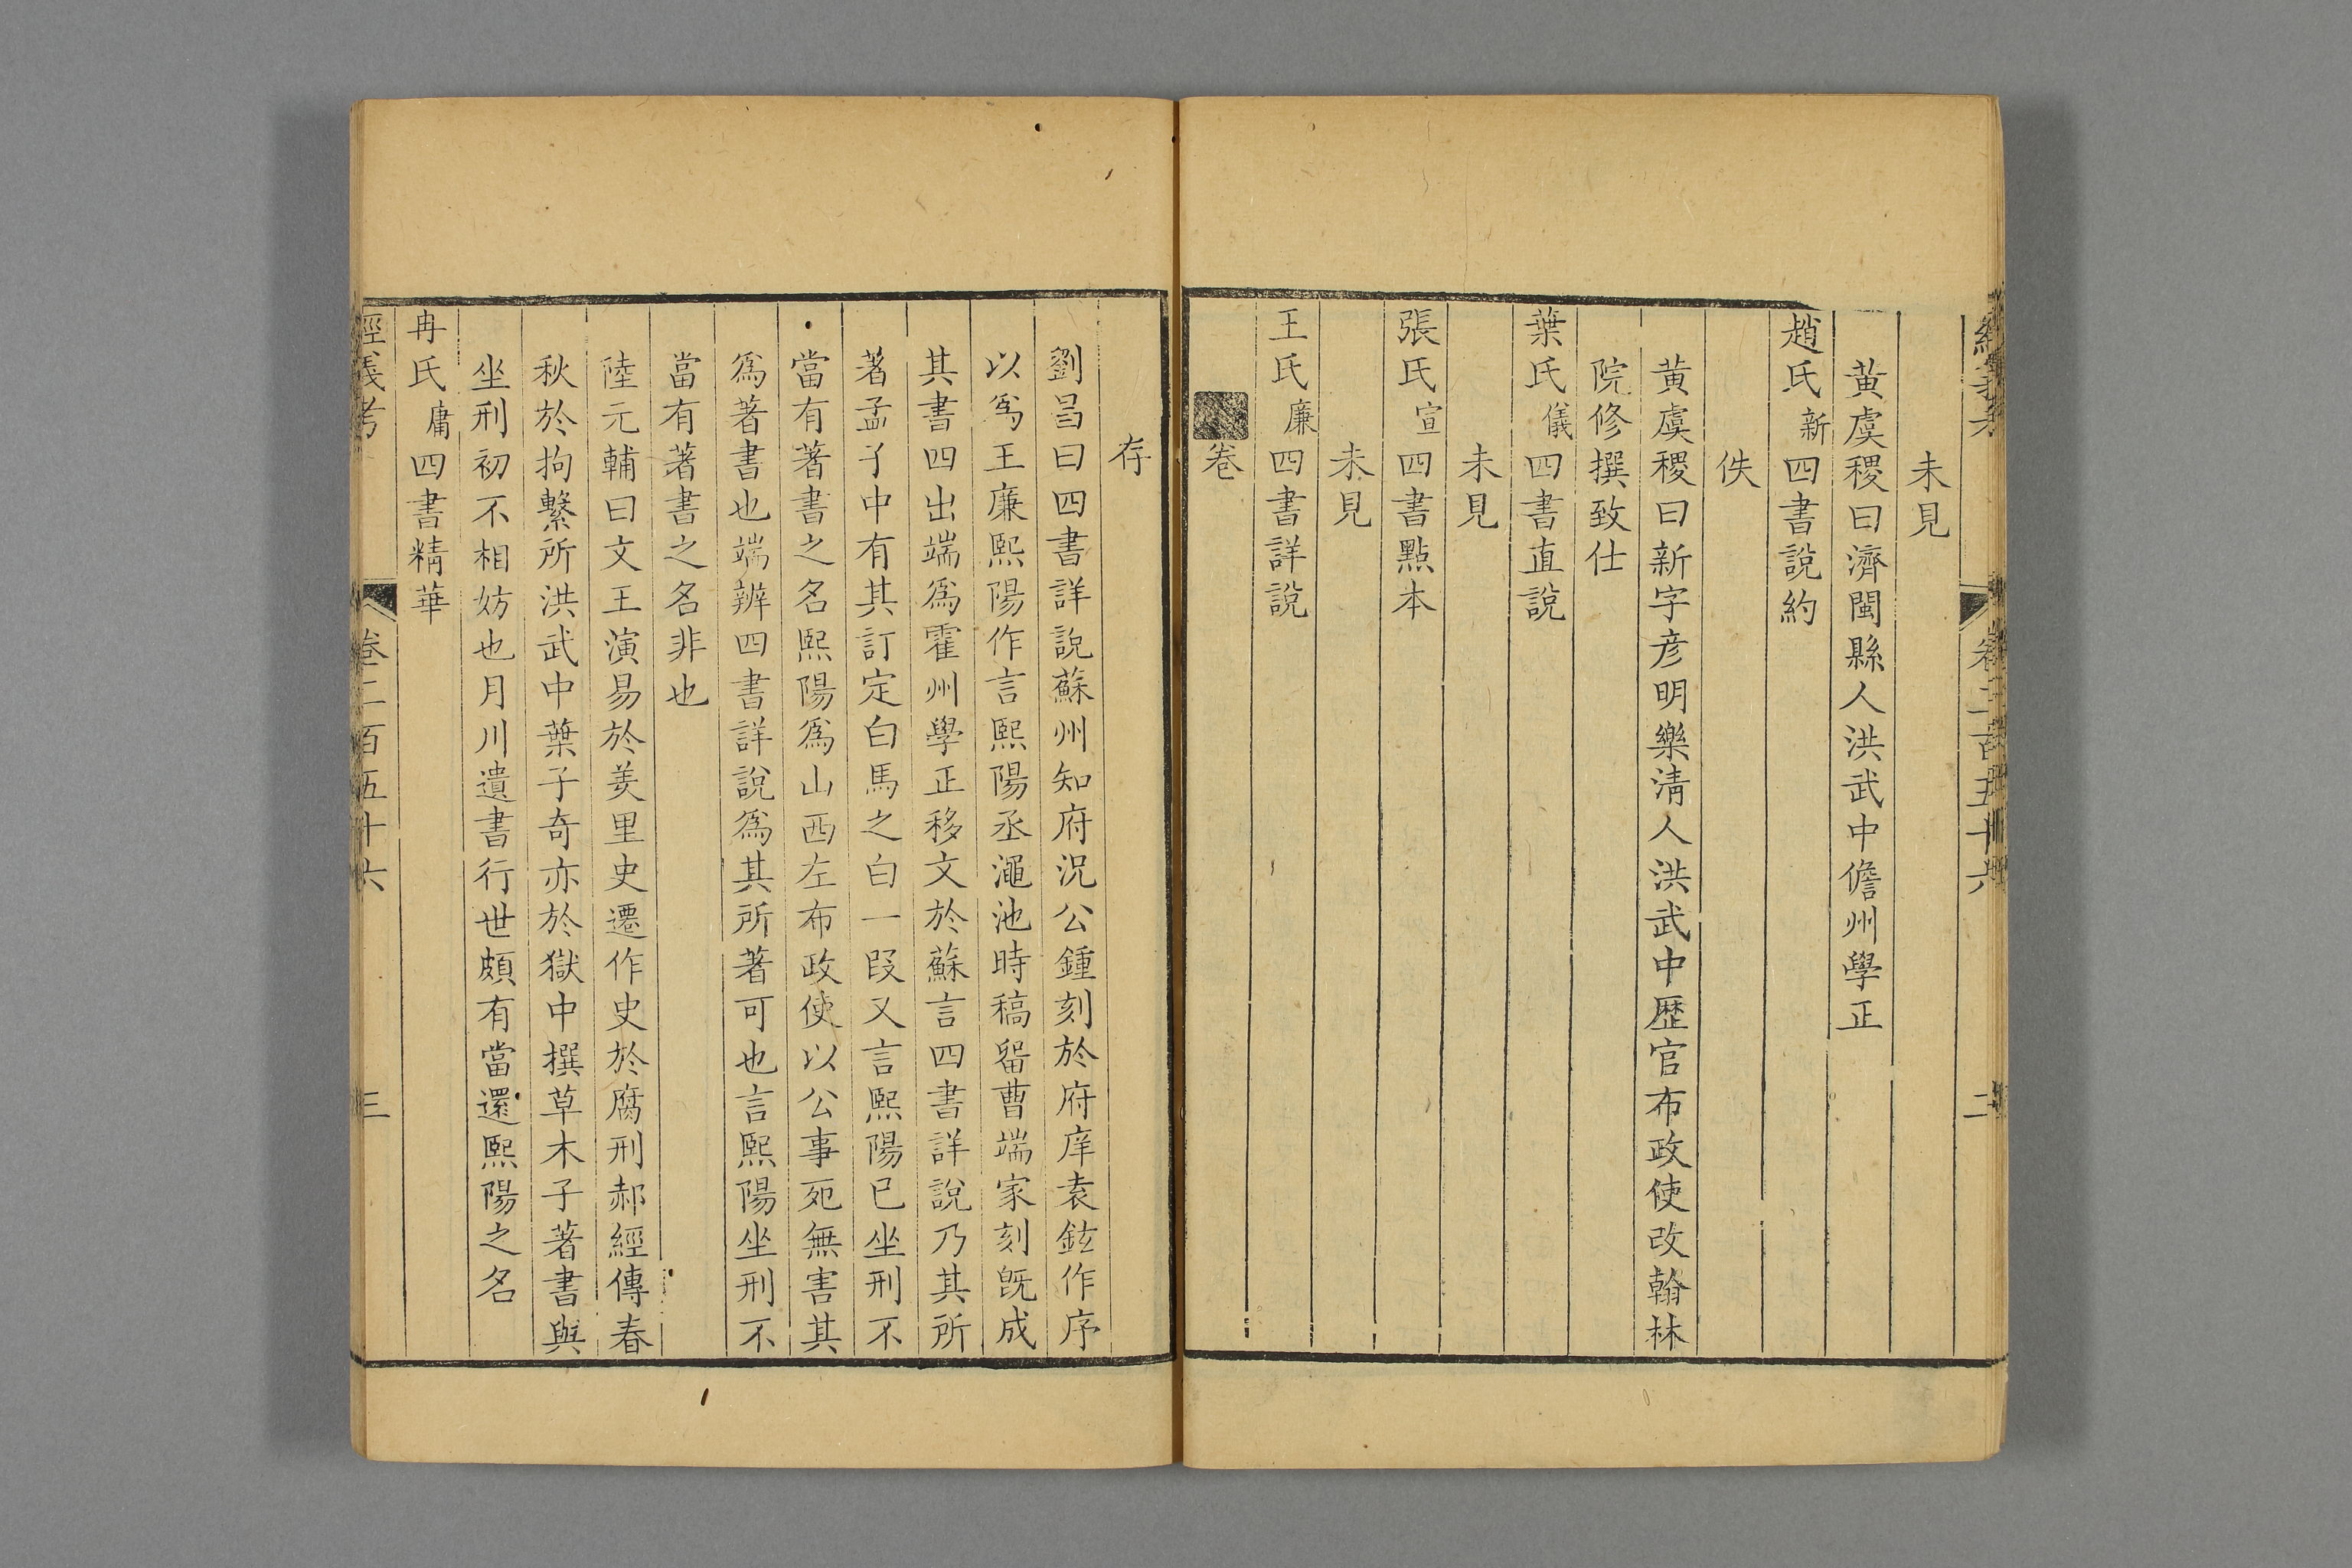 未見
黃虞稷曰濟閩縣人洪武中儋州學正
趙氏新四書說約
佚
黃虞稷曰新字彥明樂淸人洪武中歴官布政使改翰林
院修撰致仕
葉氏儀四書直說
未見
張氏宣四書點本
未見
王氏廉四書詳說
卷
存
劉昌曰四書詳說蘇州知府况公鍾刻於府庠袁鉉作序
以爲王廉熙陽作言熙陽丞澠池時稿畱曹端家刻旣成
其書四出端爲霍州學正移文於蘇言四書詳說乃其所
著孟子中有其訂定白馬之白一段又言熙陽已坐刑不
當有著書之名熙陽爲山西左布政使以公事死無害其
爲著書也端辨四書詳說爲其所著可也言熙陽坐刑不
當有著書之名非也
陸元輔曰文王演易於羑里史遷作史於腐刑郝經傳春
秋於拘繫所洪武中葉子奇亦於獄中撰草木子著書與
坐刑初不相妨也月川遺書行世頗有當還熙陽之名
冉氏庸四書精華
經義考 卷二百五十六 三